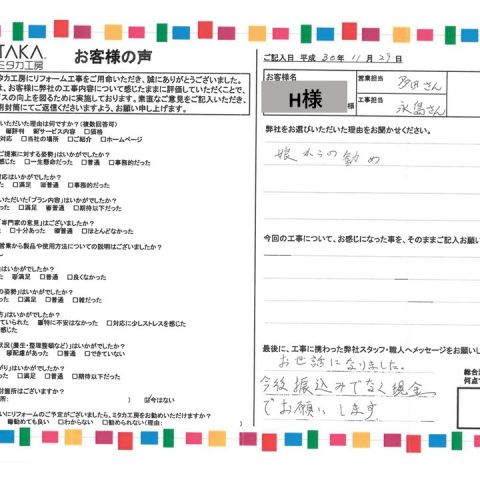 TAKA
ミタカ工房
お客様の声
タカ工房にリフォーム工事をご用命いただき、誠にありがとうございました。
は、お客様に弊社の工事内容について感じたままに評価していただくことで、
スの向上を図るために実施しております。素直なご意見をご記入いただき、
用封筒にてご返信くださいますよう、お願い申し上げます。
いただいた理由は何ですか?(複数回答可)
評判 サービス内容 □価格
対応 □当社の場所 □ご紹介 □ホームページ
ご提案に対する姿勢」はいかがでしたか?
感じた □一生懸命だった □普通 □事務的だった
対応はいかがでしたか?
った □満足 普通 □事務的だった
いただいた「プラン内容」はいかがでしたか?
った □満足 普通 □期待以下だった
「専門家の意見」はございましたか?
た □十分あった 普通 □ほとんどなかった
営業から製品や使用方法についての説明はございましたか?
はいかがでしたか?
った 満足 □普通 □良くなかった
の姿勢」はいかがでしたか?
った □満足 □普通 □雑だった
方」はいかがでしたか?
ていられた 特に不安はなかった □対応に少しストレスを感じた
状況(養生・整理整頓など)」はいかがでしたか?
配慮があった □普通 □できていない
がり」はいかがでしたか?
った □満足 □普通 □期待以下だった
対箇所はございますか?
所: ) 今はない
いにリフォームのご予定がございましたら、ミタカ工房をお勧めいただけますか?
勧めても良い □わからない □勧められない(理由: )
ご記入日 平成 30年 11月 29日
お客様名
H様
営業担当
さん
工事担当
永島さん
弊社をお選びいただいた理由をお聞かせください。
娘からの勧め
今回の工事について、お感じになった事を、そのままご記入お願い
最後に、工事に携わった弊社スタッフ・職人へメッセージをお願いし
お世話になりました。
今後振込みでなく現金
でお願いします
総合
何点